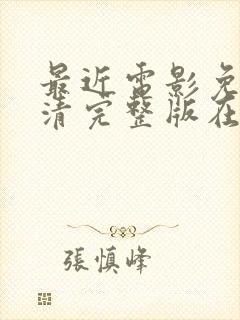 最近電影免
清完整版在
張慎峰